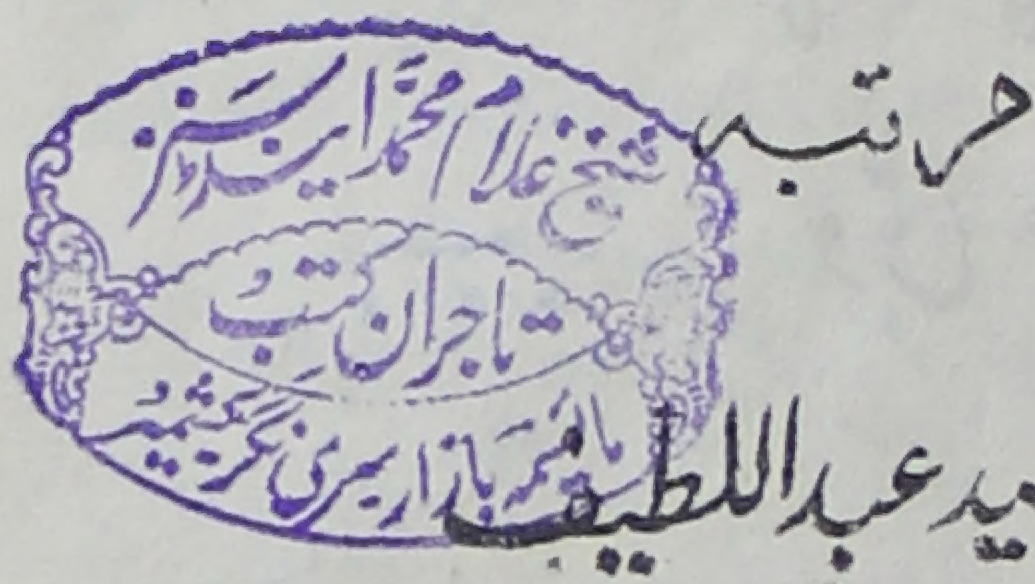 مرتبہ
شیخ غلام محمد اینڈ سنز
تاجران کتب
مائسمہ بازار سرینگر کشمیر
سید عبداللطیف